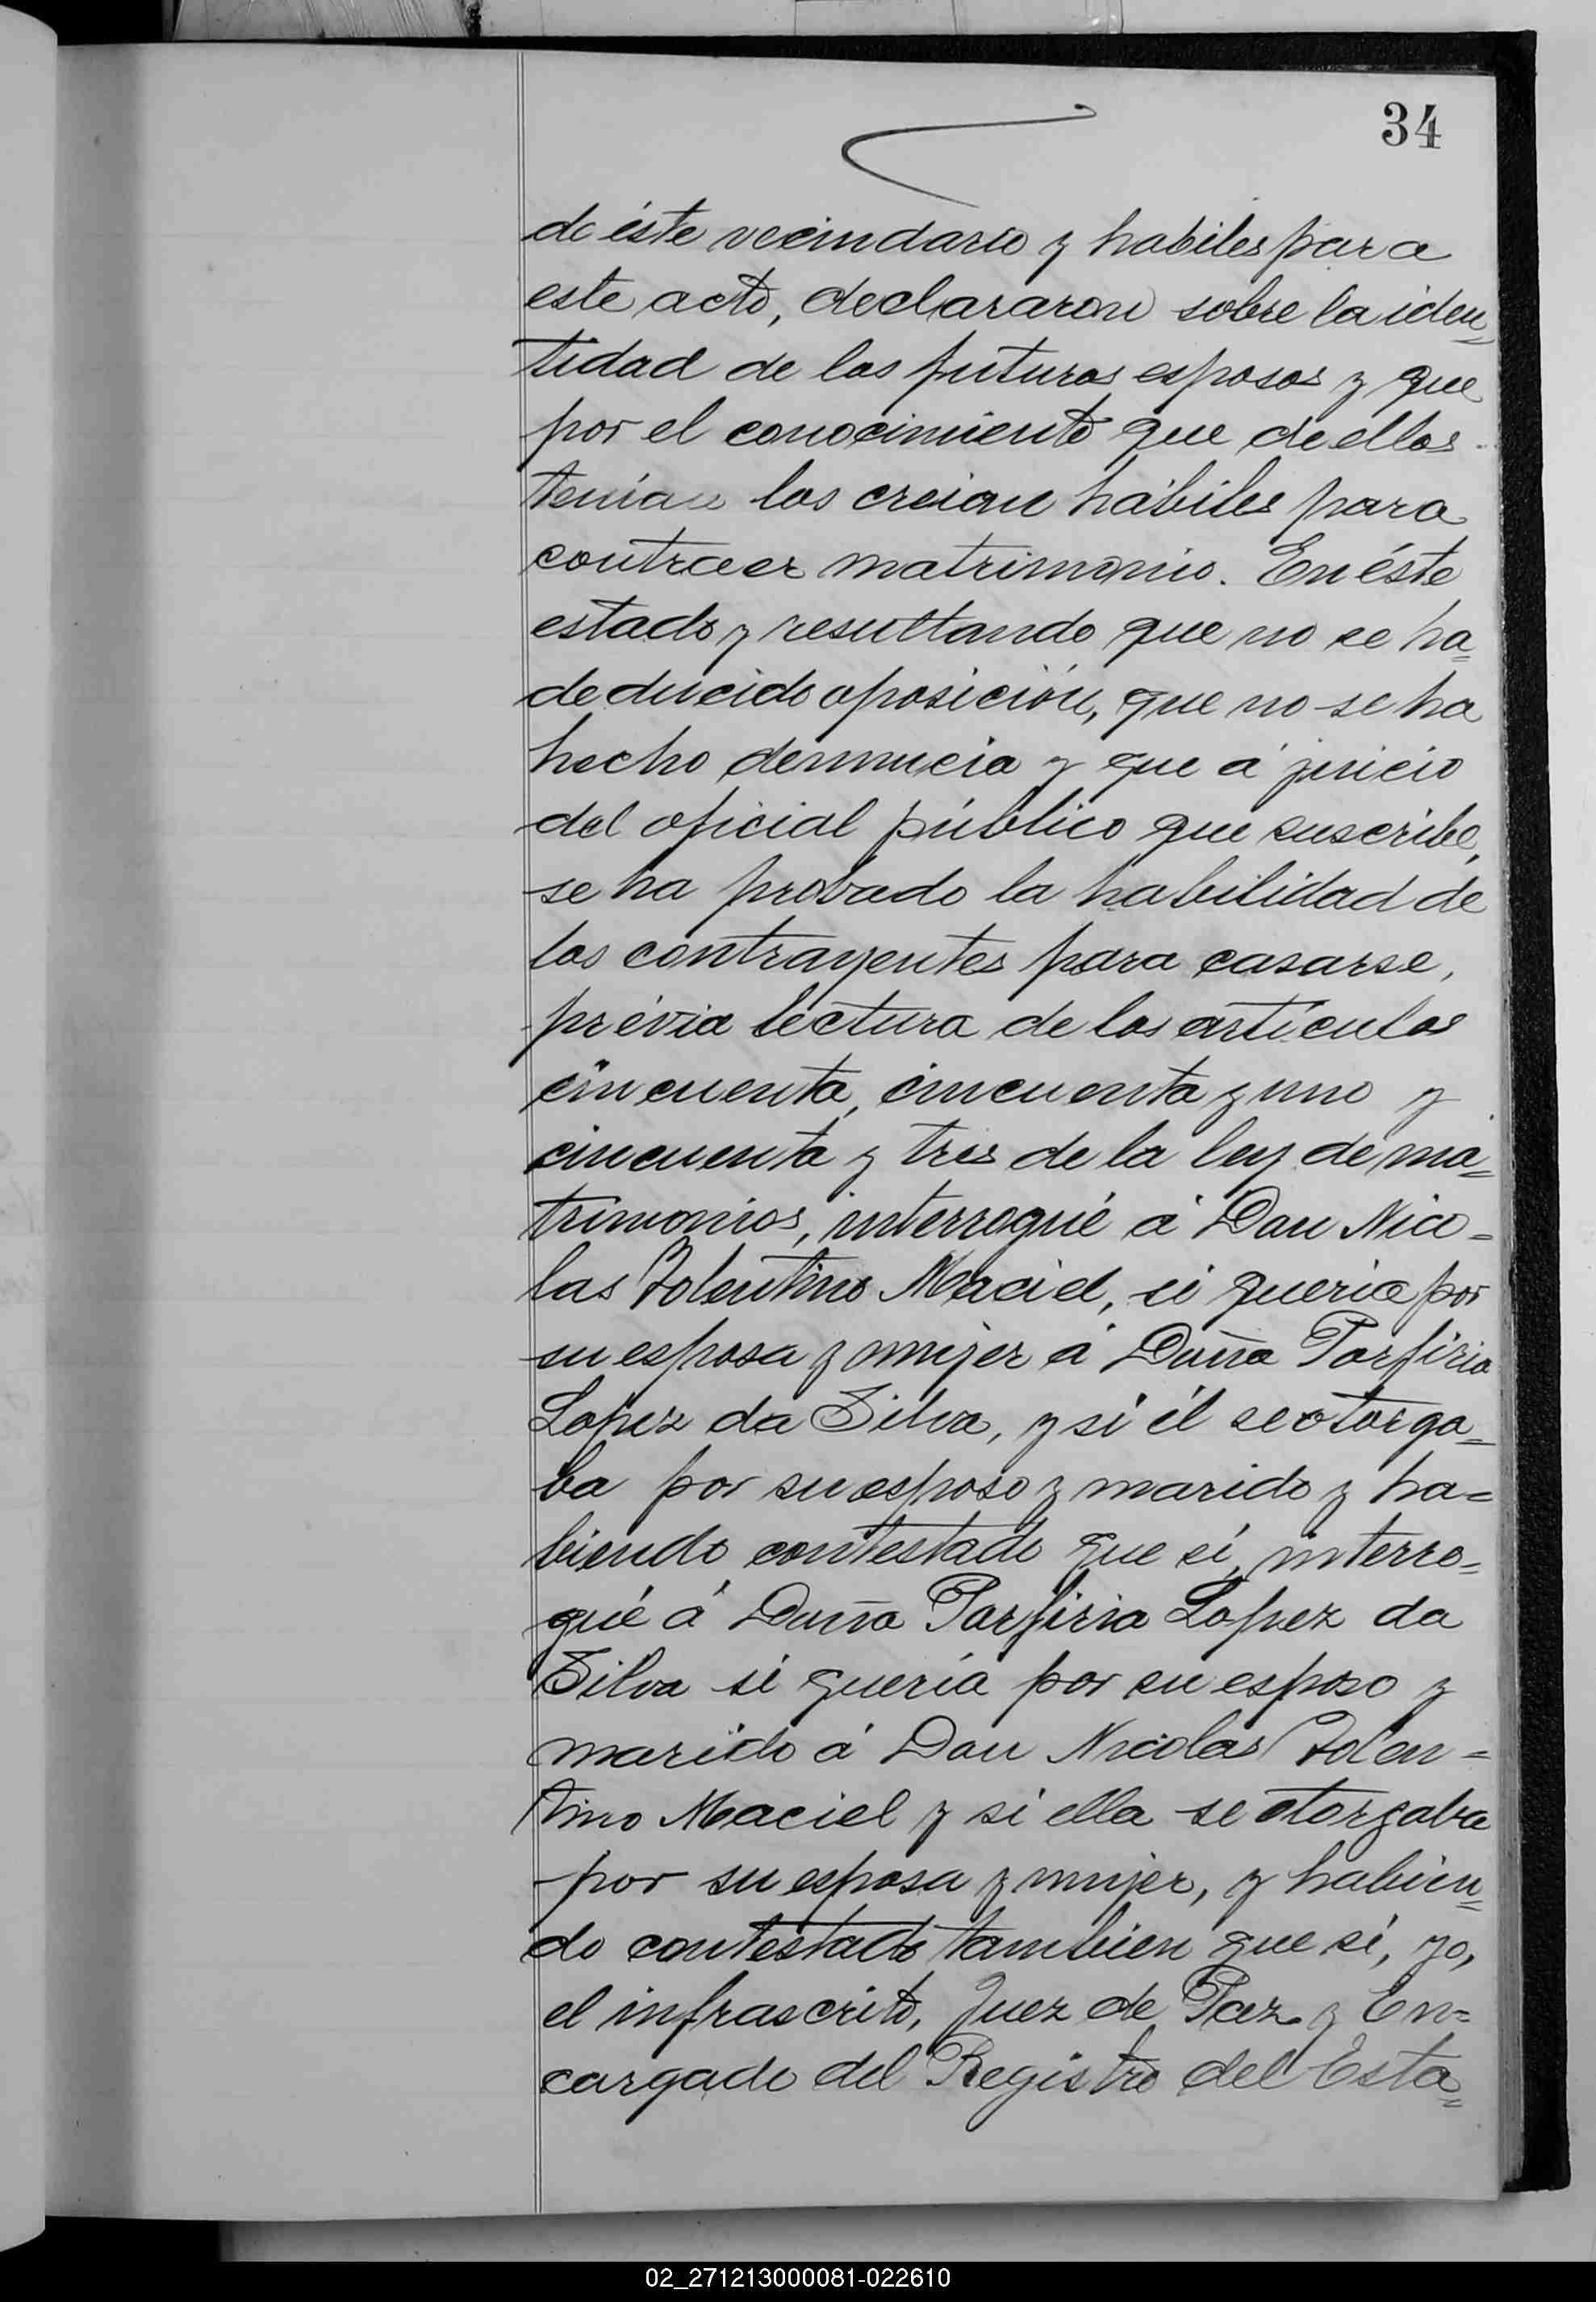 34
de éste vecindario y habiles para
este acto, declararon sobre la iden=
tidad de los futuros esposos y que
por el conocimiento que de ellos
tenian los creian hábiles para
contraer matrimonio. En éste
estado y resultando que no se ha=
deducido oposición, que no se ha
hecho denuncia y que á juicio
del oficial público que suscribe,
se ha probado la habilidad de
los contrayentes para casarse,
prévia lectura de los artículos
cincuenta, cincuenta y uno y
cincuenta y tres de la ley de ma=
trimonios, interrogué á Don Nico=
las Tolentino Maciel, si queria por
su esposa y mujer á Doña Porfiria
Lopez da Silva, y si él se otorga=
ba por su esposo y marido y ha=
biendo contestado que sí, interro=
gué á Doña Porfiria Lopez da
Silva si quería por su esposo y
marido á Don Nicolás Tolen=
tino Maciel y si ella se otorgaba
por su esposa y mujer, y habien=
do contestado tambien que sí, yo,
el infrascrito, Juez de Paz y En=
cargado del Registro del Esta=
02_271213000081-022610